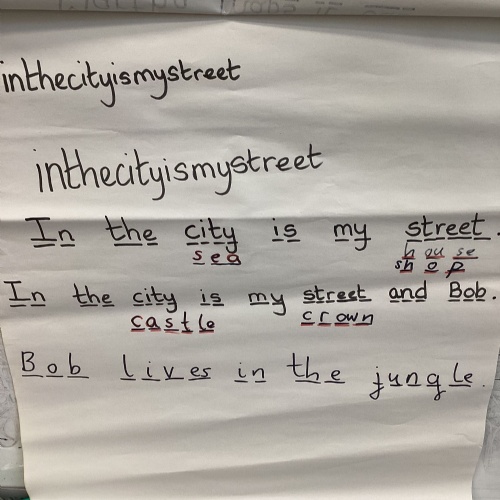 inthecityismystreet
inthecityismystreet
In the city is my street.
sea house
shop
In the city is my street and Bob.
castle crown
Bob lives in the jungle.